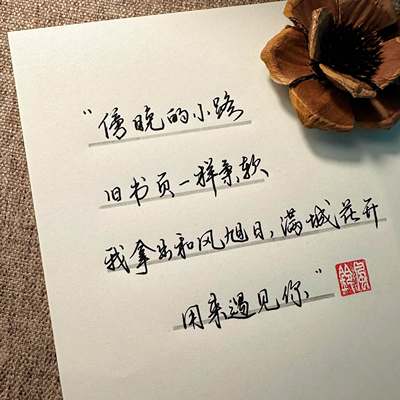 “傍晚的小路
旧书页一样柔软
我拿出和风旭日，满城花开
用来遇见你”